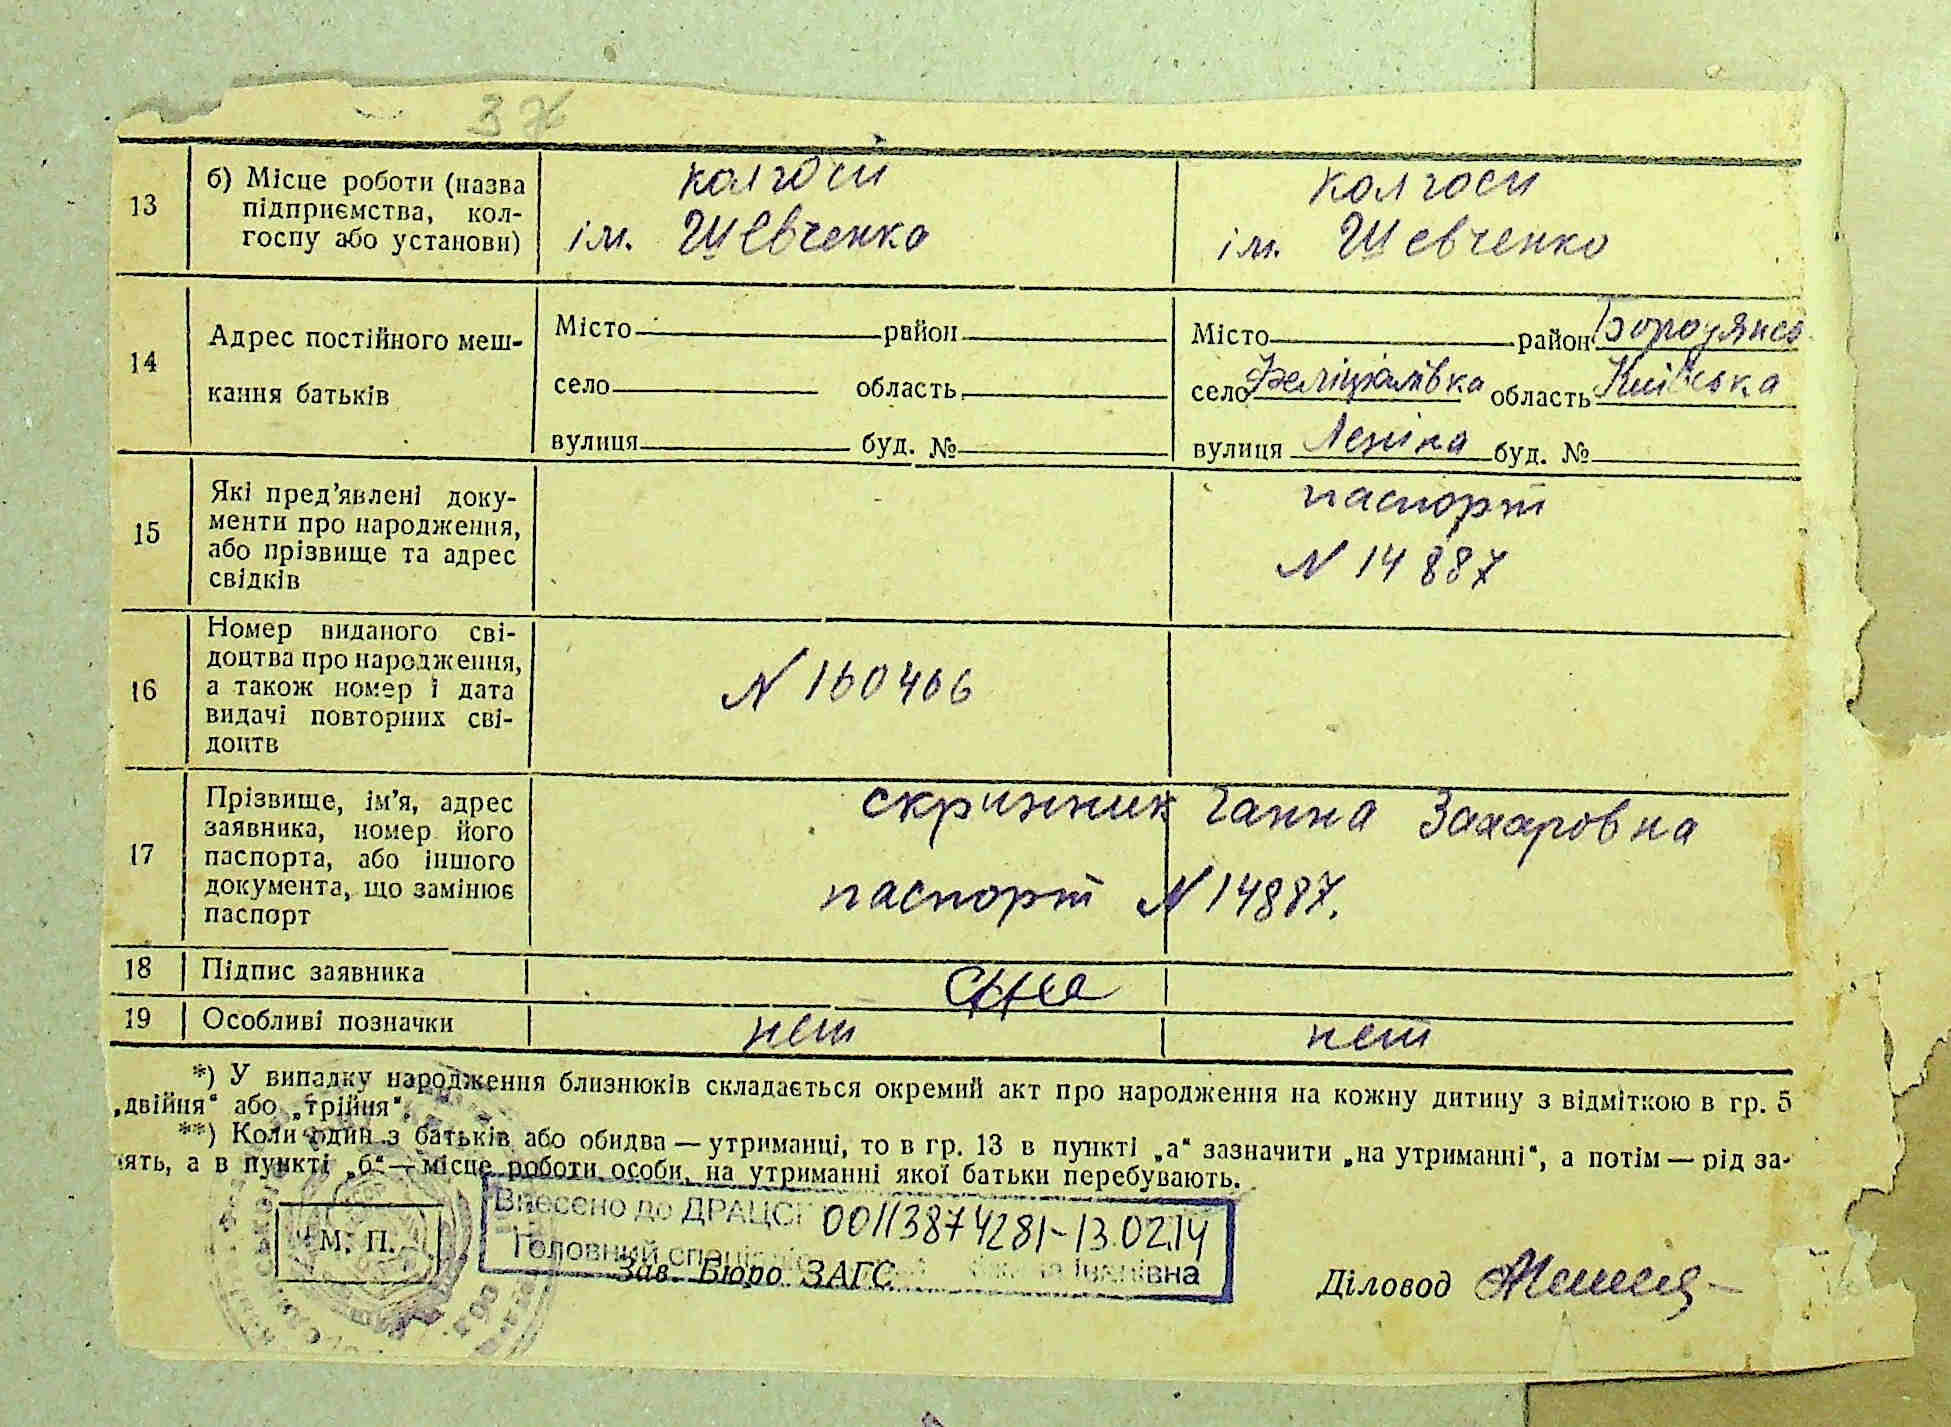 З Ж
13 б) Місце роботи (назва підприємства, кол-госпу або установи) колгосп ім. Шевченко колгосп ім. Шевченко
14 Адрес постійного меш-кання батьків
Місто район Місто район Бородянсь
село область село Феліціянівка область Київська
вулиця буд. № вулиця Леніна буд. №
15 Які пред'явлені доку-менти про народження, або прізвище та адрес свідків паспорт N 14887
16 Номер виданого сві-доцтва про народження, а також номер і дата видачі повторних сві-доцтв N 160406
17 Прізвище, ім'я, адрес заявника, номер його паспорта, або іншого документа, що замінює паспорт скринник Ганна Захаровна паспорт N 14887.
18 Підпис заявника
19 Особливі позначки нет нет
*) У випадку народження близнюків складається окремий акт про народження на кожну дитину з відміткою в гр. 5
„двійня“ або „трійня“.
**) Коли один з батьків або обидва — утриманці, то в гр. 13 в пункті „а“ зазначити „на утриманні“, а потім — рід за-
ять, а в пункті „б“ — місце роботи особи, на утриманні якої батьки перебувають.
Внесено до ДРАЦСГ 00113874281-13.02.14
Головний спеціаліст Іванівна
М. П. Зав. Бюро ЗАГС Діловод